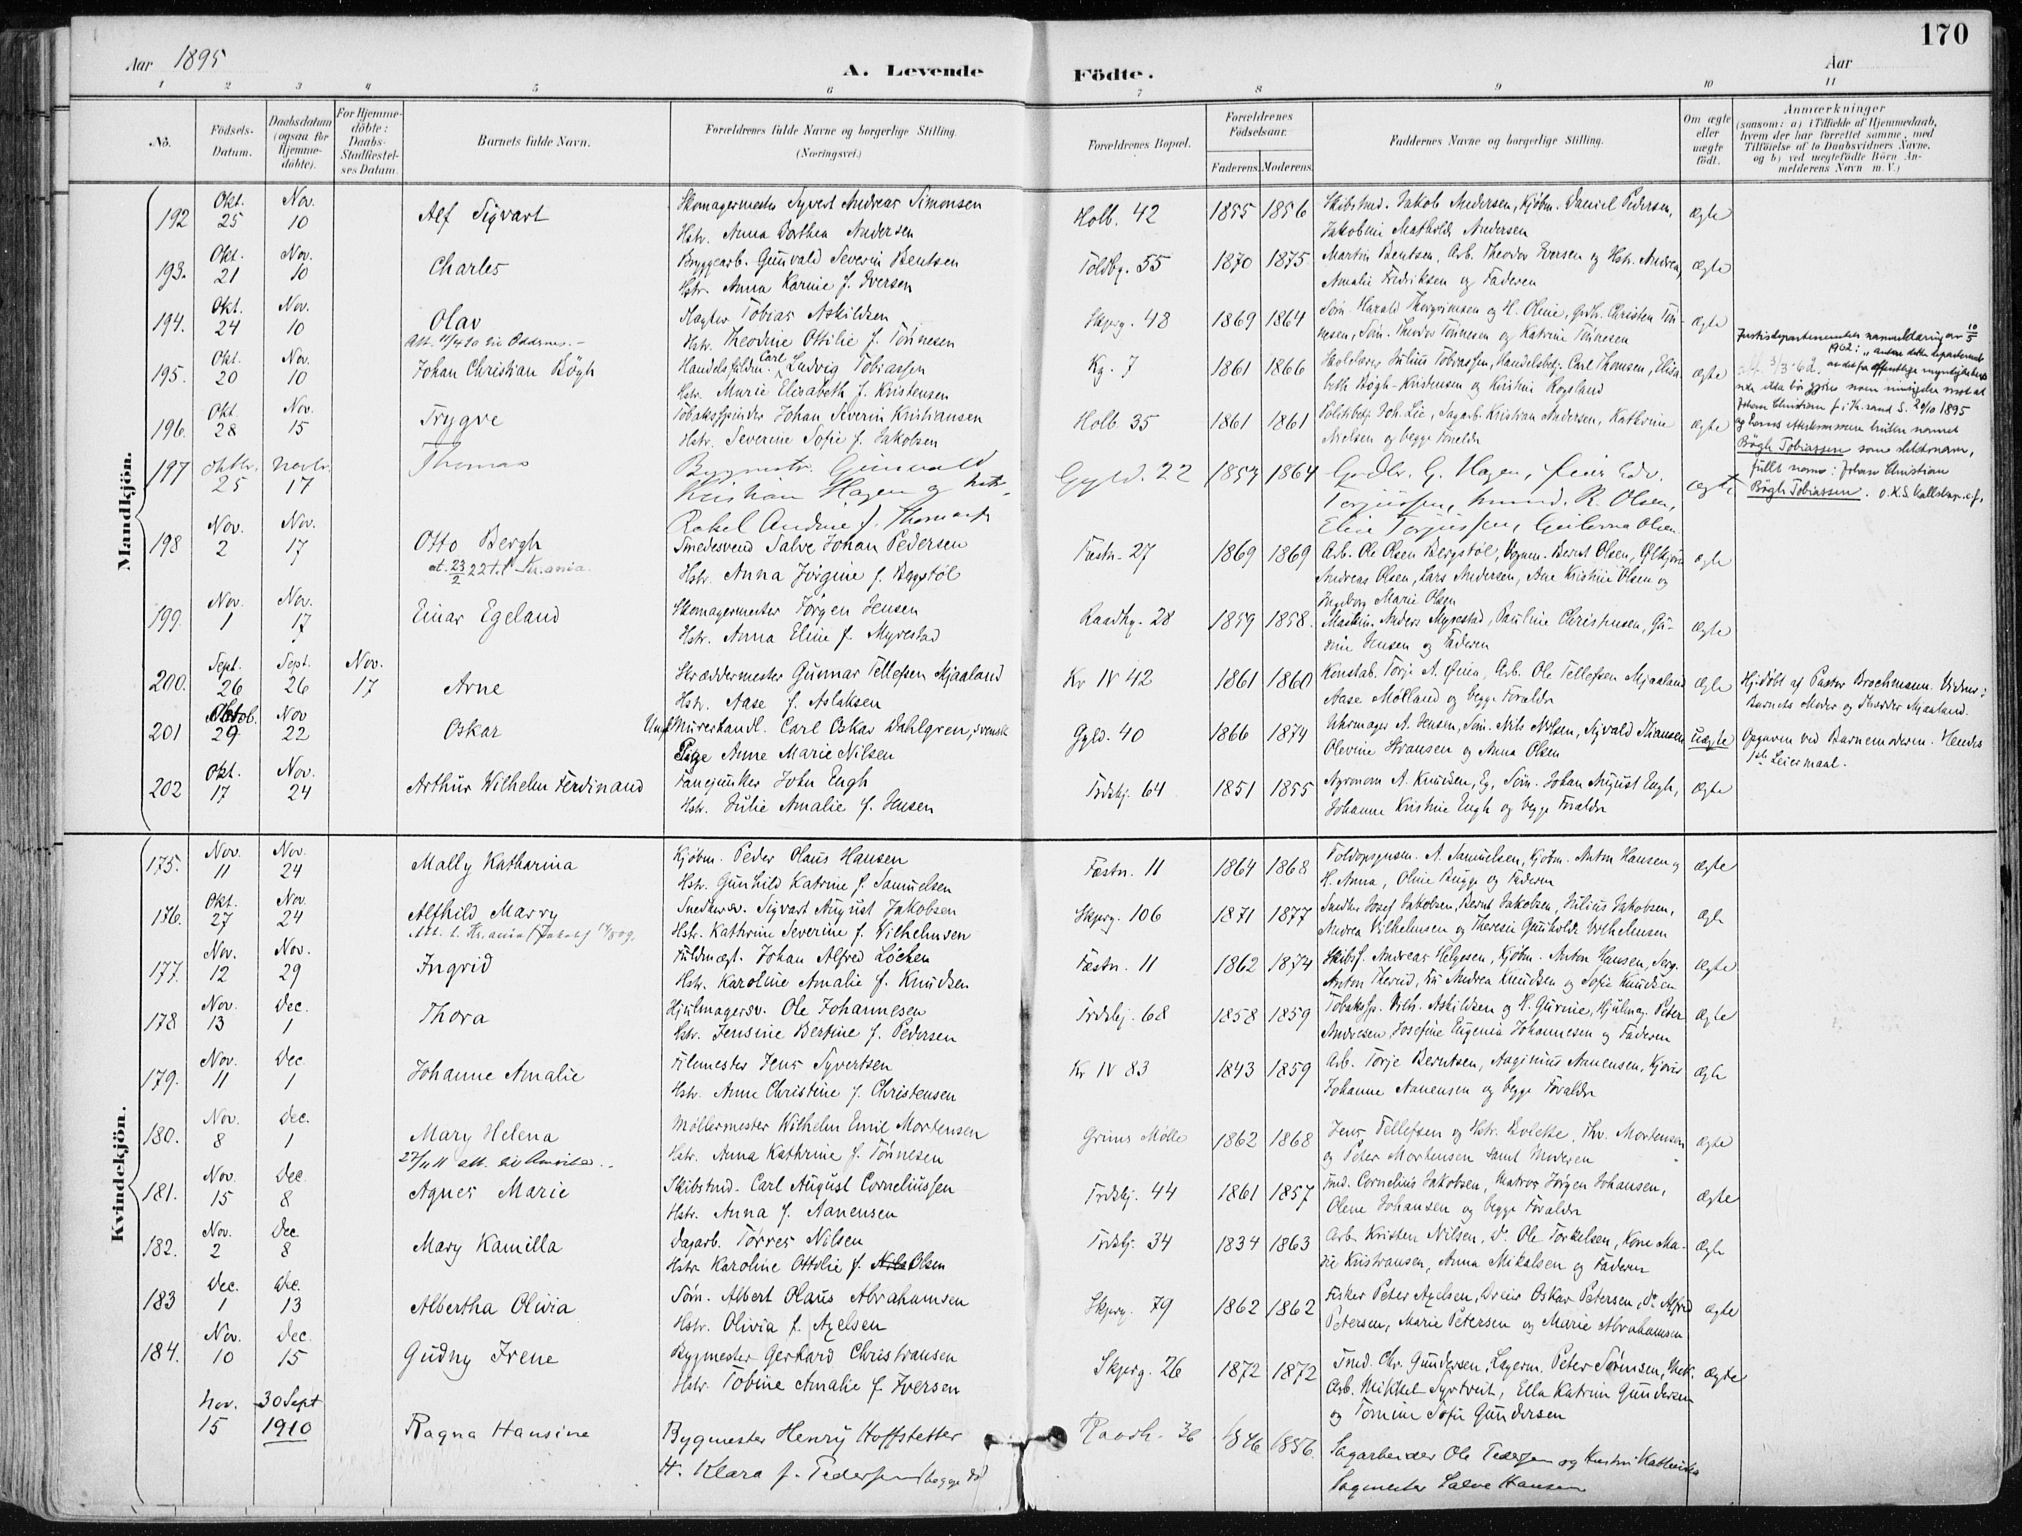 170
Aar 1895
A. Levende Födte.
Aar
1 2 3 4 5 6 7 8 9 10 11
No.
Födsels-Datum.
Daabsdatum (ogsaa for Hjemme-döbte).
For Hjemme-döbte: Daabs-Stadfæstel-ses Datum
Barnets fulde Navn.
Forældrenes fulde Navne og borgerlige Stilling.
(Næringsvei.)
Forældrenes Bopæl.
Forældrenes Födselsaar.
Faderens. Moderens.
Faddernes Navne og borgerlige Stilling.
Om ægte eller uægte födt.
Anmærkninger
(saasom: a) i Tilfælde af Hjemmedaab,
hvem der har forrettet samme, med
Tilföielse af to Daabsvidners Navne,
og b) ved uægtefödte Börn An-
melderens Navn m. V.)
Mandkjön.
192 Okt. 25 Nov. 10 Alf Sigvart
Skomagermester Syvert Andreas Simonsen
Hstr. Anna Dorthea Andersen
Holb. 42 1855 1856
Skibstmd. Jakob Andersen, Kjøbm. Daniel Pedersen,
Jakobine Mathilde Andersen
Ægte
193. Okt. 21 Nov. 10 Charles
Bryggearb. Gunvald Severin Bentsen
Hstr. Anna Karine f. Iversen
Toldbg. 55 1870 1875
Martin Bentsen, Arb. Theodor Iversen og Hstr. Andrea,
Amalie Fredriksen og Faderen
Ægte
194. Okt. 24 Nov. 10 Olav
Tobias Askildsen
Hstr. Theodine Ottilie f. Tønnesen
Skjerg. 48 1869 1864
Søm. Harald Thorgrimsen og H. Oline, Christen Tøn-
nesen, Søm. Theodor Tønnesen og Katrine Tønnesen
Ægte
195. Okt. 20 Nov. 10 Johan Christian Bögh
Carl Ludvig Tobiassen
Hstr. Marie Elisabeth f. Kristensen
Kg. 7 1861 1866
Julius Tobiassen, Handelsbetj. Carl Thomsen, Elisa-
beth Bögh-Kristensen og Kristine Rogsland
Ægte
Justisdepartementet 10/5
1962:
Johan Christian f. i Kr.sand S. 20/10 1895
Bögh Tobiassen som slektsnavn,
fullt navn: Johan Christian
Bögh Tobiassen. O.K.S.
196. Okt. 28 Nov. 15 Trygve
Tobaksspinder Johan Severin Kristiansen
Hstr. Severine Sofie f. Jakobsen
Holb. 35 1861 1861
Politibetj. Joh. Lie, Sagarb. Kristian Andersen, Kathrine
Nielsen og begge Forældre
Ægte
197 Oktbr. 25 Novbr. 17 Thomas
Bygmstr. Gunvald
Kristian Hagen og hstr.
Rakel Andrine f. Thomassen
Gyld. 22 1857 1864
G. Hagen, feier Edv.
Torjussen, R. Olsen,
Eline Torjussen, Olsen
ægte
198 Nov. 2 Nov. 17 Otto Bergh
at. 23/2 22 til Kr.ania.
Smedesvend Salve Johan Pedersen
Hstr. Anna Jörgine f. Bergstöl
Festn. 27 1869 1869
Arb. Ole Olsen Bergstöl, Bernt Olsen,
Andreas Olsen, Lars Andersen, Ane Kristine Olsen og
Ingeborg Marie Olsen
ægte
199. Nov. 1 Nov. 17 Einar Egeland
Skomagermester Jörgen Jensen
Hstr. Anna Eline f. Myrestad
Raadhg. 28 1859 1858.
Maskin. Anders Myrestad, Pauline Christensen, Gu-
rine Jensen og Faderen
Ægte
200. Sept. 26 Sept. 26 Nov. 17 Arne
Skræddermester Gunnar Tellefsen Mjaaland
Hstr. Aase f. Aslaksen
Kr IV 42 1861 1860
Konstab. Torje A. Øien, Arb. Ole Tellefsen Mjaaland
Aase Molland og begge Forældre
Ægte
Hj.döbt af Pastor Brochmann. Vidner:
Barnets Moder og Thedder Mjaaland.
201 Oktob. 29 Nov 22 Oskar
Ungk. Murerhandl. Carl Oskar Dahlgren, svensk
Pige Anne Marie Nilsen
Gyld. 40 1866 1874
Uhrmager A. Jensen, Søm. Nils Nilsen, Sigvald Hansen
Olevine Hansen og Anna Olsen
Uægte
Opgaven ved Barnemoderen. Hendes
1ste Leiermaal.
202 Okt. 17 Nov. 24 Arthur Wilhelm Ferdinand
Fanejunker John Engh
Hstr. Julie Amalie f. Jensen
Trdsbj. 64 1851 1855
Agronom A. Knudsen, Eg, Søm. Johan August Engh,
Johanne Kristine Engh og begge Forældre
Ægte
Kvindekjön.
175. Nov. 11 Nov. 24 Mally Katharina
Kjöbm. Peder Olaus Hansen
Hstr. Gunhild Katrine f. Samuelsen
Fæstn. 11 1864 1868
Toldopsynsm. A. Samuelsen, Kjöbm. Anton Hansen og
H. Anna, Oline Bugge og Faderen
Ægte
176. Okt. 27 Nov. 24 Alfhild Marry
Snedkersv. Sigvart August Jakobsen
Hstr. Kathrine Severine f. Vilhelmsen
Skjerg. 106 1871 1877
Snedker Josef Jakobsen, Bernt Jakobsen, Julius Jakobsen,
Andrea Vilhelmsen og Theresie Gunhilde Vilhelmsen
Ægte
177. Nov. 12 Nov. 29 Ingrid
Fuldmægt. Johan Alfred Löchen
Hstr. Karoline Amalie f. Knudsen
Fæstn. 11 1862 1874
Skibsf. Andreas Helgesen, Kjøbm. Anton Hansen, Serg.
Anton Therud, Fru Andrea Knudsen og Sofie Knudsen
Ægte
178 Nov. 13 Dec. 1 Thora
Hjulmagersv. Ole Johannesen
Hstr. Jensine Bertine f. Pedersen
Trdsbj. 68 1858 1859
Tobaksp. Vilh. Askildsen og H. Gurine, Hjulmag. Peter
Andresen, Josefine Eugenia Johannesen og Faderen
Ægte
179. Nov. 11 Dec. 1 Johanne Amalie
Filemester Jens Syvertsen
Hstr. Anne Christine f. Christensen
Kr IV 83 1843 1859
Arb. Torje Berntsen, Aaginius Aanensen,
Johanne Aanensen og begge Forældre
Ægte
180. Nov. 8 Dec. 1 Mary Helena
Møllermester Wilhelm Emil Mortensen
Hstr. Anna Kathrine f. Tønnesen
Grims Mølle 1862 1868
Jens Tellefsen og Hstr. Bolette, Thv. Mortensen
og Peter Mortensen samt Moderen
Ægte
181. Nov. 15 Dec. 8 Agnes Marie
Skibstmd. Carl August Corneliussen
Hstr. Anna f. Aanensen
Trdsbj. 44 1861 1857
Tmd. Cornelius Jakobsen, Matros Jörgen Johansen,
Olene Johansen og begge Forældre
Ægte
182. Nov. 2 Dec. 8 Mary Kamilla
Dagarb. Torres Nilsen
Hstr Karoline Ottilie f. Olsen
Trdsbj. 34 1834 1863
Arb. Kristen Nilsen, Do. Ole Torkelsen, Kone Ma-
rie Kristiansen, Anna Mikalsen og Faderen
Ægte
183 Dec. 1 Dec. 13 Albertha Olivia
Søm. Albert Olaus Abrahamsen
Hstr. Olivia f. Axelsen
Skjerg. 79 1862 1862
Fisker Peter Axelsen, Dreier Oskar Petersen, Do. Alfred
Petersen, Marie Petersen og Marie Abrahamsen
Ægte
184. Nov. 10 Dec. 15 Gudny Irene
Bygmester Gerhard Christiansen
Hstr. Tobine Amalie f. Iversen
Skjerg. 26 1872 1872
Tmd. Chr. Gundersen, Lagerm. Peter Sørensen, Mek.
Arb. Mikkel Syrtveit, Ella Katrine Gundersen
og Tomine Sofie Gundersen
Ægte
Nov. 15 30 Sept 1910 Ragna Hansine
Bygmester Henry Hoffstetter
H. Klara f. Pedersen (begge dö)
Raadh. 36 1846 1856.
Sagarbeider Ole Pedersen og Kathrine
Sagmester Salve Hansen